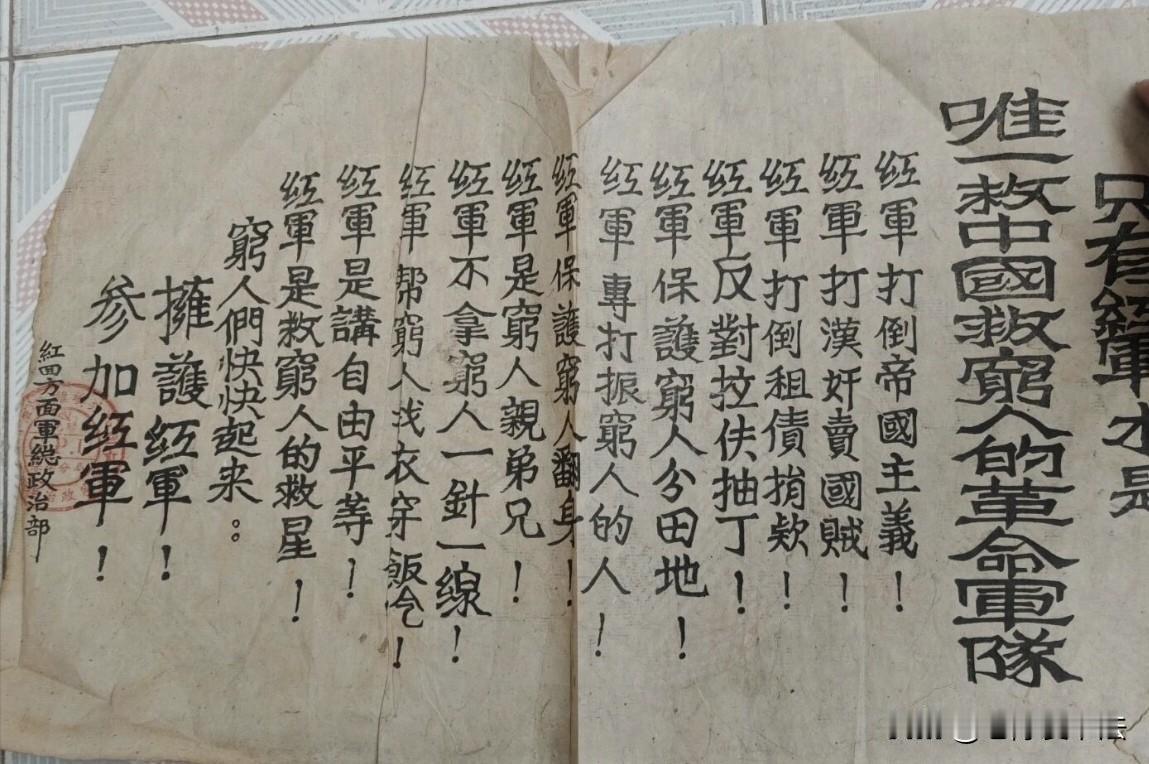 只有紅軍才是
唯一救中國救窮人的革命軍隊
紅軍打倒帝國主義！
紅軍打漢奸賣國賊！
紅軍打倒租債捐欵！
紅軍反對拉伕抽丁！
紅軍保護窮人分田地！
紅軍專打振窮人的人！
紅軍保護窮人翻身！
紅軍是窮人親弟兄！
紅軍不拿窮人一針一線！
紅軍帮窮人找衣穿飯吃！
紅軍是講自由平等！
紅軍是救窮人的救星！
窮人們快快起来：
擁護紅軍！
參加紅軍！
紅四方面軍總政治部